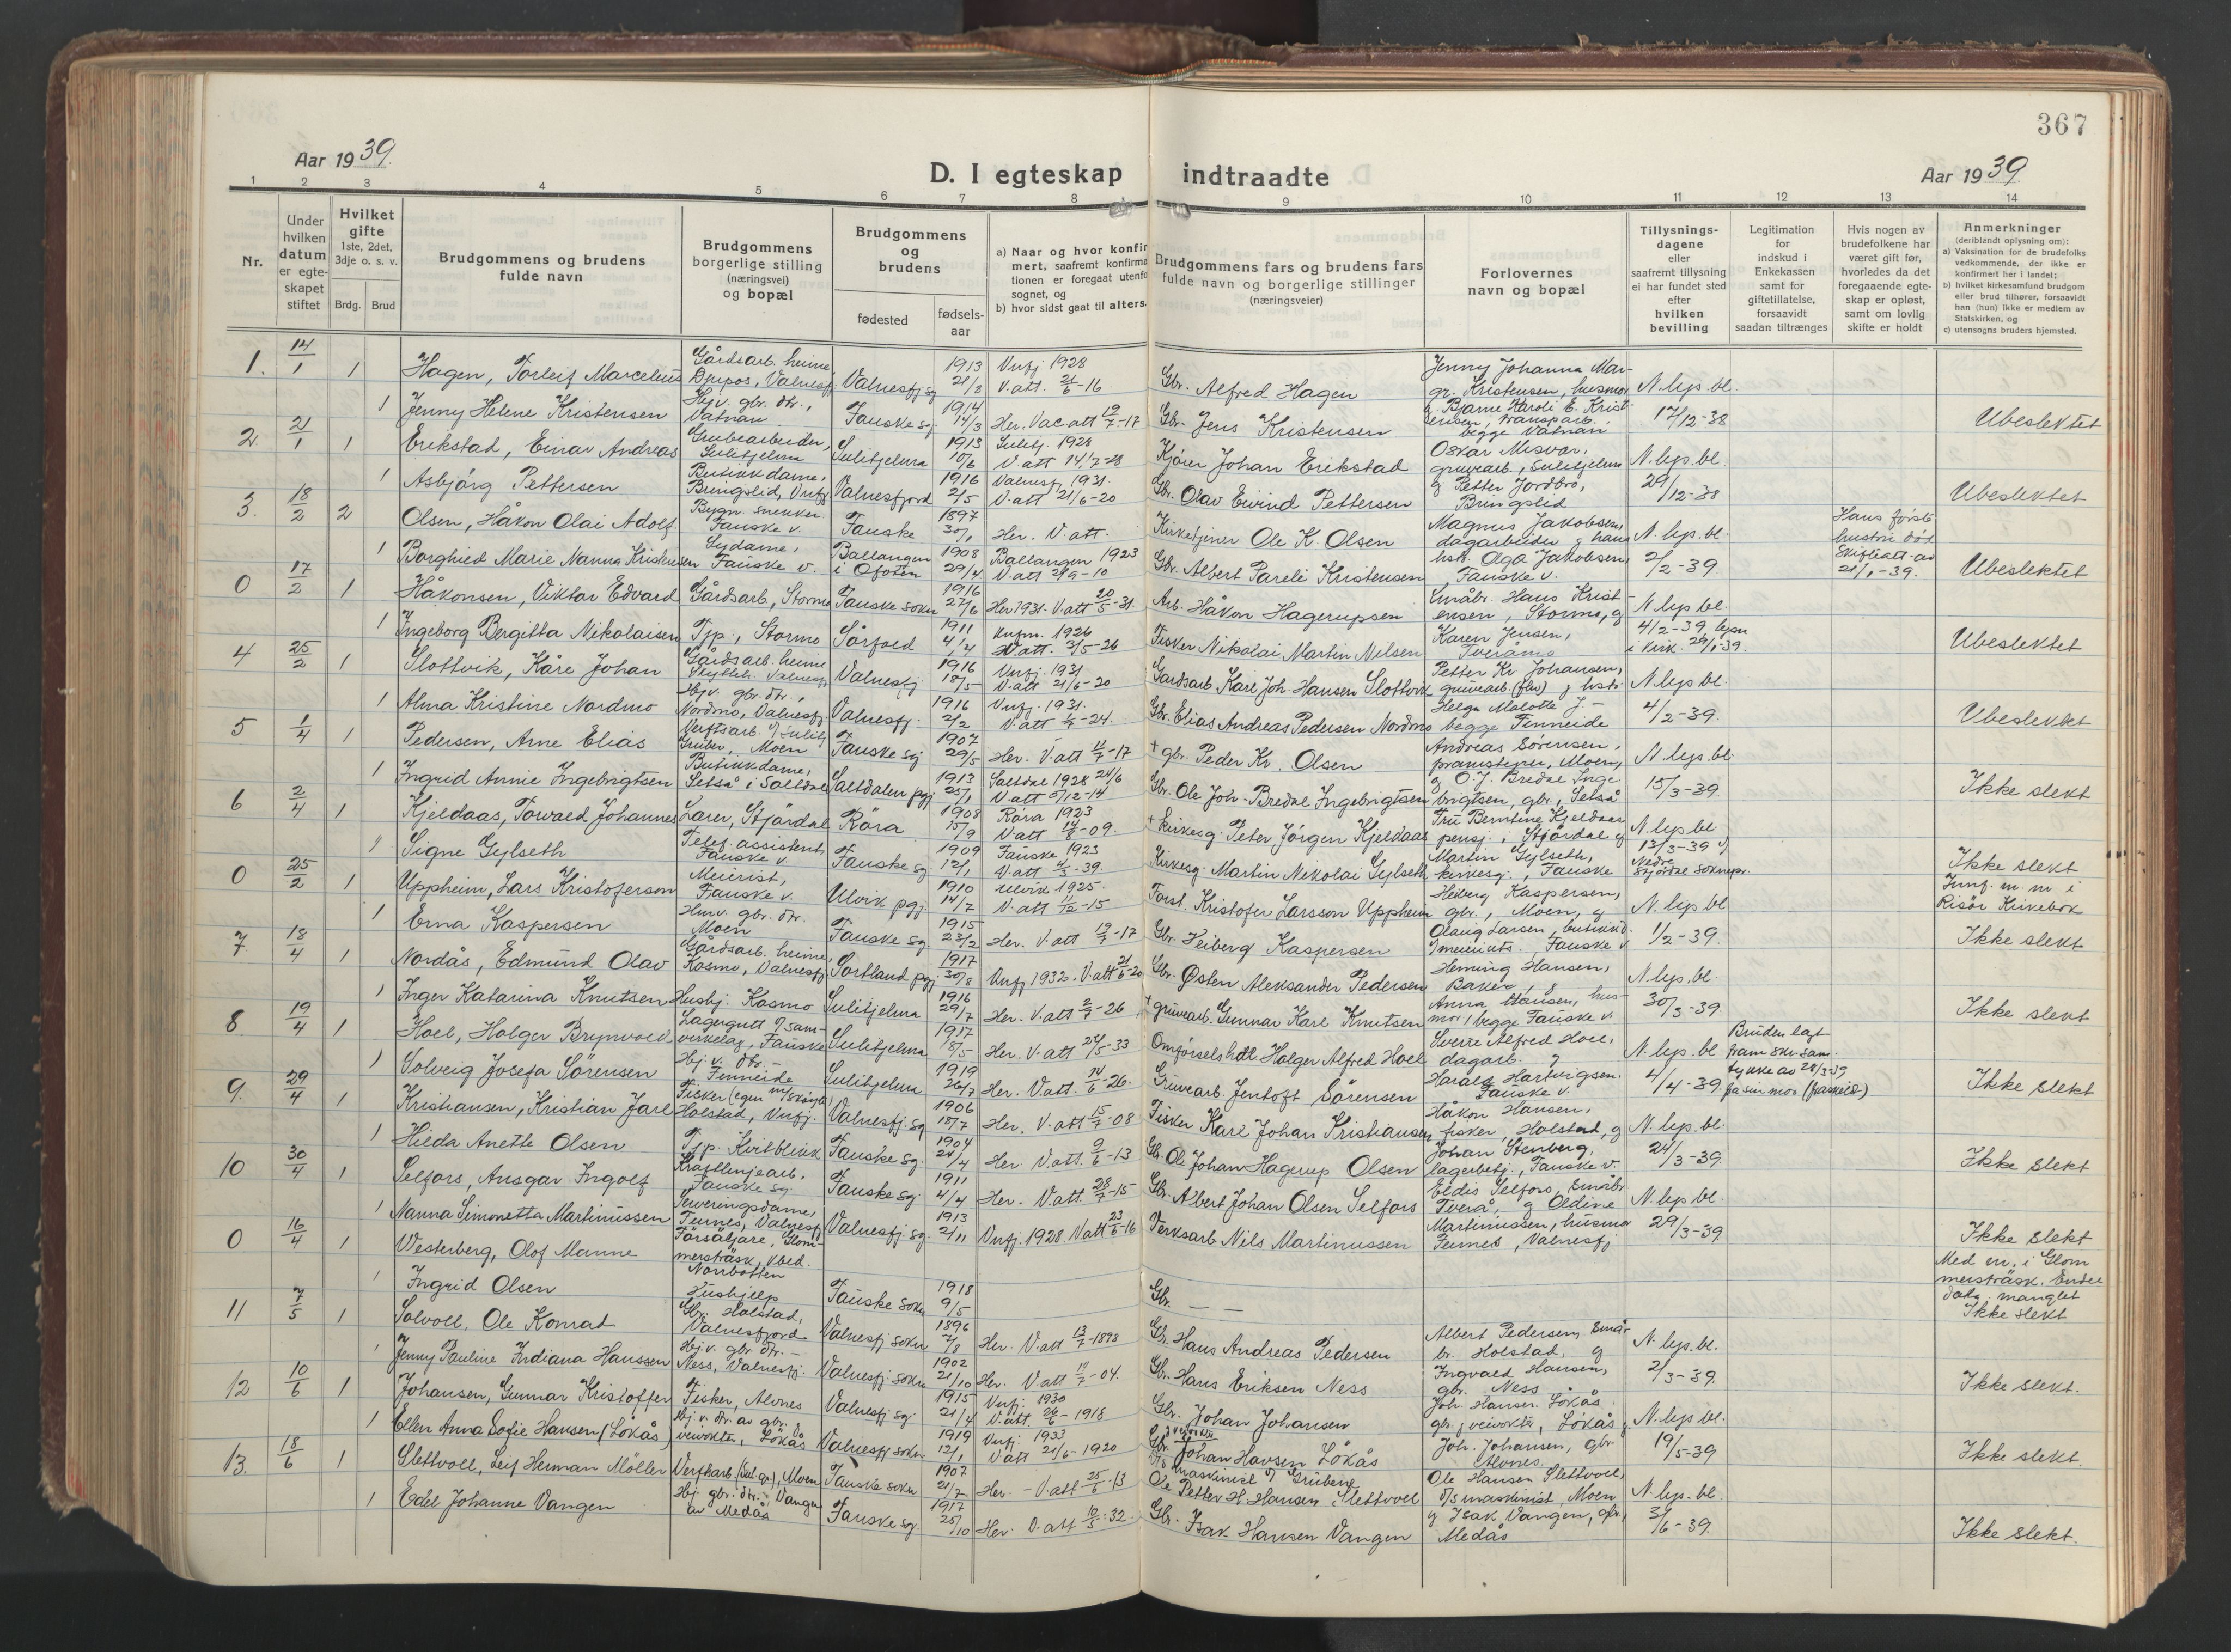 367
Aar 1939.
D. I egteskap indtraadte
Aar 1939
1 2 3 4 5 6 7 8 9 10 11 12 13 14
Nr.
Under hvilken datum er egteskapet stiftet
Hvilket gifte 1ste, 2det, 3dje o. s. v.
Brdg. Brud
Brudgommens og brudens fulde navn
Brudgommens borgerlige stilling (næringsvei) og bopæl
Brudgommens og brudens
fødested
fødsels-aar
a) Naar og hvor konfirmert, saafremt konfirmationen er foregaat utenfor sognet, og
b) hvor sidst gaat til alters.
Brudgommens fars og brudens fars fulde navn og borgerlige stillinger (næringsveier)
Forlovernes navn og bopæl
Tillysningsdagene eller saafremt tillysning ei har fundet sted efter hvilken bevilling
Legitimation for indskud i Enkekassen samt for giftetillatelse, forsaavidt saadan tiltrænges
Hvis nogen av brudefolkene har været gift før, hvorledes da det foregaaende egteskap er opløst, samt om lovlig skifte er holdt
Anmerkninger (deriblandt oplysning om):
a) Vaksination for de brudefolks vedkommende, der ikke er konfirmert her i landet;
b) hvilket kirkesamfund brudgom eller brud tilhører, forsaavidt han (hun) ikke er medlem av Statskirken, og
c) utensogns bruders hjemsted.
1. 14/1 1 Hagen, Torleif Marcelius Gårdsarb. heime Djupos, Valnesfj. Valnesfj. sg 1913 21/8 Vnfj 1928 V.att. 21/6-16 Gbr. Alfred Hagen Jenny Johanna Margr. Kristensen, husmor N. lys. bl.
1 Jenny Helene Kristensen Hj.v. gbr. dtr., Vatnan Fauske sg. 1914 14/3 Her. Vac att 19/7-17 Gbr. Jens Kristensen g Bjarne Karoli E. Kristensen, transp.arb. begge Vatnan 17/12-38 Ubeslektet
2. 21/1 1 Erikstad, Einar Andreas Grubearbeider, Sulitjelma Sulitjelma 1913 10/6 Sulitj. 1928 V.att 14/7-28 Kjörer Johan Erikstad Oskar Misvar, gruvearb., Sulitjelma N. lys. bl.
1 Asbjörg Pettersen Butikkdame, Bringslid, Vnfj Valnesfjord 1916 2/5 Valnesfj. 1931. V.att 21/6-20 Gbr. Olav Eivind Pettersen g Petter Jordbro, Bringslid 29/12-38 Ubeslektet
3. 18/2 2 Olsen, Håkon Olai Adolf Bygn. snekker. Fauske v. Fauske 1897 30/1 Her. V.att. Kirketjener Ole K. Olsen Magnus Jakobsen, dagarbeider g hans N. lys. bl. Hans første hustru död
1 Borghild Marie Nanna Kristensen Sydame, Fauske v. Ballangen i Ofoten 1908 29/4 Ballangen 1923 V.att 21/9-10 Gbr. Albert Pareli Kristensen hst. Olga Jakobsen, Fauske v. 2/2-39. Skifteatt. av 21/1-39. Ubeslektet
0 17/2 1 Håkonsen, Viktor Edvard Gårdsarb., Stormo Fauske sokn 1916 27/6 Her 1931. V.att 20/5-31. Arb. Håkon Hagerupsen Småbr. Hans Kristensen, Stormo, g N. lys. bl.
1 Ingeborg Bergitta Nikolaisen Tjp., Stormo Sörfold 1911 4/4 Knfm. 1926 V.att. 3/5-26 Fisker Nikolai Martin Nilsen Karen Jensen, Tveråmo 4/2-39. lysn i kirk. 29/1-39. Ubeslektet
4 25/2 1 Slottvik, Kåre Johan Gårdsarb. heime Valnesfj. Valnesfj. 1916 18/5 Vnfj. 1931 V.att 21/6-20 Gardsarb. Karl Joh. Hansen Slottvik Petter Kr Johansen, gruvearb. g hstr. N. lys. bl.
1 Alma Kristine Nordmo Hj.v. gbr. dtr., Nordmo, Valnesfj. Valnesfj. 1916 2/2 Vnfj. 1931. V.att -24. Gbr. Elias Andreas Pedersen Nordmo Helga Malotte J.- begge Finneide 4/2-39. Ubeslektet
5 1/4 1 Pedersen, Arne Elias Verftsarb. v/ Sulitj Gruber, Moen Fauske sg 1907 29/5 Her. V.att 11/7-17 + gbr. Peder Kr. Olsen Andreas Sörensen, pramstyrer, Moen, N. lys. bl.
1 Ingrid Annie Ingebrigtsen Butikkdame, Setså i Saltdal Saltdalen pgj 1913 25/1 Saltdal 1928 24/6 V.att 5/12-14 Gbr. Ole Joh. Bredal Ingebrigtsen g O. J. Bredal Ingebrigtsen, gbr., Setså 15/3-39. Ikke slekt
6 2/4 1 Kjeldaas, Torvald Johannes Lærer, Stjördal Röra 1908 15/9 Röra 1923 V.att 14/8-09. + kirkesg. Peter Jörgen Kjeldaas Fru Berntine Kjeldaas pensj., Stjördal g N. lys. bl.
" Signe Gylseth Telef. assistent, Fauske v. Fauske sg 1909 12/1 Fauske 1923 V.att 4/3-39. Kirkesg. Martin Nikolai Gylseth Martin Gylseth, kirkesg., Fauske 13/3-39 Nedre Stjördal soknepr. Ikke slekt
0 25/2 1 Uppheim, Lars Kristoferson Meierist, Fauske v. Ulvik pgj. 1910 14/7 Ulvik 1925. V.att 11/12-15 Forst. Kristofer Larsson Uppheim Heiberg Kaspersen, gbr., Moen, g N. lys. bl Innf. m. nr i Risör Kirkebok
1 Erna Kaspersen Husv. gbr. dtr. Moen Fauske sg. 1915 23/2 Her. V.att 19/7-17 Gbr. Heiberg Kaspersen Olaug Larsen, butikkd. Fauske v 1/2-39. Ikke slekt
7. 18/4 1 Nordås, Edmund Olav Gårdsarb. heime, Kosmo, Valnesfj Sortland pgj 1917 30/8 Vnfj 1932. V.att 21/6-20 Gbr. Østen Aleksander Pedersen Heming Hansen, Baker, g N. lys. bl
1 Inger Katarina Knutsen Husbj. Kosmo Sulitjelma 1916 29/7 Her. V.att 2/7-26 + gruvearb. Gunnar Karl Knutsen Anna Hansen, husmor, begge Fauske v. 30/3-39. Ikke slekt
8. 19/4 1 Hoel, Holger Brynvold Lagergutt v/ samvirkelag, Fauske Sulitjelma 1917 8/5 Her. V.att 24/5-33 Omförselshdl. Holger Alfred Hoel Sverre Alfred Hoel, dagarb. g N. lys. bl Bruden lagt fram skr. sam-
1 Solveig Josefa Sörensen Hj.v. dtr.- Finneide Sulitjelma 1919 26/7 Her. V.att. 14/6-26. Gruvearb. Jentoft Sörensen Harald Hartvigsen. Fauske v. 4/4-39. tykke av 28/3-39 fra sin mor (fraskilt) Ikke slekt
9. 29/4 1 Kristiansen, Kristian Jarl Fisker (egen m/skøyte) Holstad, Vnfj. Valnesfj. sg 1906 18/7 Her. V.att 15/7-08 Fisker Karl Johan Kristiansen Håkon Hansen, fisker, Holstad, g N. lys. bl.
1 Hilda Anette Olsen Tjp. Kvitblikk Fauske sg. 1904 24/4 Her. V.att. 9/6-13 Gbr. Ole Johan Hagerup Olsen Johan Stenberg, lagerbetj., Fauske v. 24/3-39 Ikke slekt
10 30/4 1 Selfors, Ansgar Ingolf Kraftlinjearb., Fauske sg Fauske sg. 1911 4/4 Her. V.att. 28/7-15 Gbr. Albert Johan Olsen Selfors Eldis Selfors, småbr. Tverå, g Oldine N. lys bl.
1 Nanna Simonetta Martinussen Serveringsdame, Furnes, Valnesfj Valnesfj. sg. 1913 2/11 Vnfj. 1928 V.att 23/6-16 Verksarb Nils Martinussen Martinussen, husmor Furnes, Valnesfj 29/3-39 Ikke slekt
0 16/4 1 Westerberg, Olof Manne Försäljare, Glommersträsk, vbed. Norrbotten Med nr. i Glommersträsk. Endel data manglet
1 Ingrid Olsen Hushjelp Fauske sokn 1918 9/5 Gbr. — — Ikke slekt
11 7/5 1 Solvoll, Ole Konrad Gbr. Holstad, Valnesfjord Valnesfj sokn 1896 7/8 Her. V.att 13/7-1898 Gbr. Hans Andreas Pedersen Albert Pedersen, småbr. Holstad, g N. lys. bl.
1 Jenny Pauline Indiana Hanssen Hj.v. gbr. dtr.- Ness, Valnesfj. Valnesfj. sokn 1902 21/10 Her. V.att 19/7-04. Gbr. Hans Eriksen Ness Ingvald Hansen, gbr. Ness 2/3-39. Ikke slekt.
12 10/6 1 Johansen, Gunnar Kristoffer Fisker, Alvnes Valnesfj sg. 1915 21/4 Vnfj. 1930 V.att. 26/6-1918 Gbr. Johan Johansen Joh. Hansen Lökås gbr. g veivokter, Lökås g N. lys. bl.
1 Ellen Anna Sofie Hansen (Lökås) Hj.v. dtr. av gbr. g veivokter, Lökås Valnesfj sokn 1919 12/1 Vnfj. 1933 V.att 21/6-1920 Gbr. g veivokter Johan Hansen Lökås Joh. Johansen, gbr Alvnes. 19/5-39 Ikke slekt.
13. 18/6 1 Slettvoll, Leif Herman Möller Verftsarb. (Sul. gr.), Moen Fauske sokn 1907 21/7 Her. - V.att 25/6-13 D/S maskinist v/ Grubene Ole Petter H. Hansen Slettvoll Ole Hansen Slettvoll, D/S maskinist, Moen N. lys. bl.
1 Edel Johanne Vangen Hj. gbr. dtr.- Vangen av Medås Fauske sg. 1917 25/10 Her. V.att 10/5-32. Gbr. Isak Hansen Vangen g Isak Vangen, gbr., Medås 3/6-39. Ikke slekt.